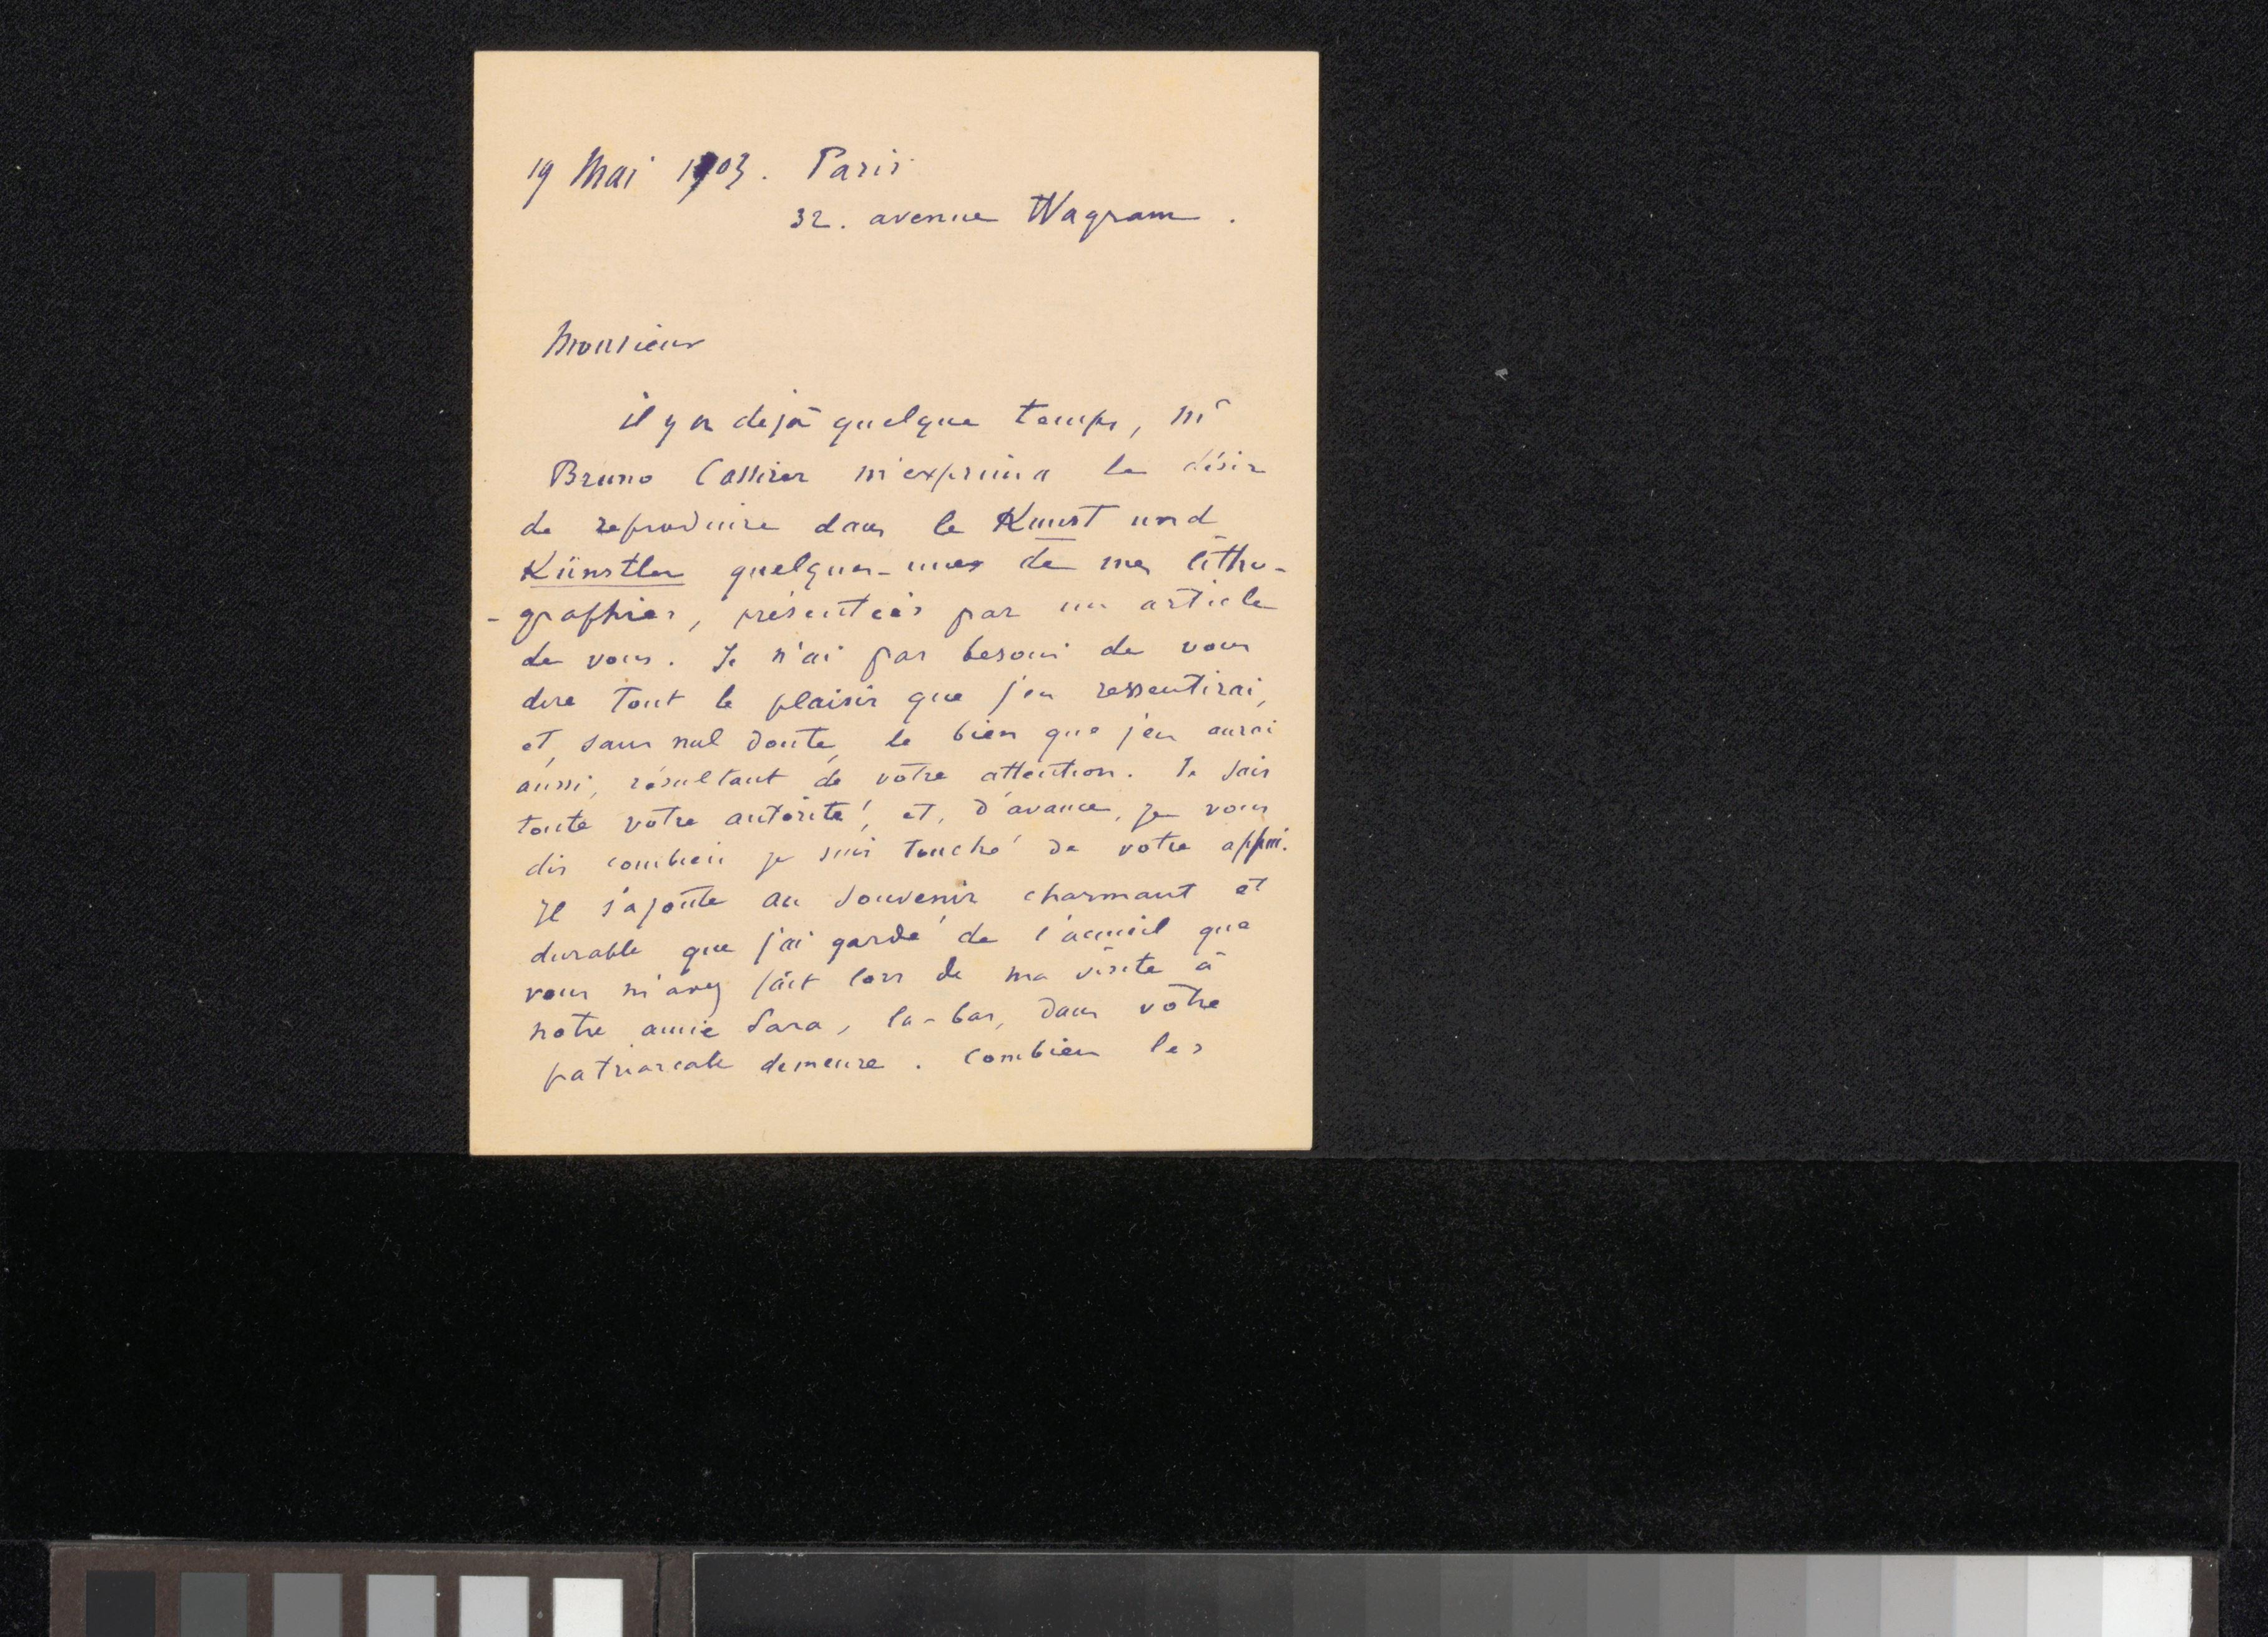 19 Mai 1903. Paris.
32. avenue Wagram.
Monsieur
il y a dejà quelque temps, Mr
Bruno Cassirer m'exprima le désir
de reproduire dans le Kunst und
Künstler quelques-unes de mes litho-
-graphies, présentées par un article
de vous. Je n'ai pas besoin de vous
dire tout le plaisir que j'en ressentirai,
et, sans nul doute, le bien que j'en aurai
aussi, résultant de votre attention. Je sais
toute votre autorité, et, d'avance, je vous
dis combien je suis touché de votre appui.
Il s'ajoute au souvenir charmant et
durable que j'ai gardé de l'accueil que
vous m'avez fait lors de ma visite à
notre amie Sara, la-bas, dans votre
patriarcale demeure. Combien les